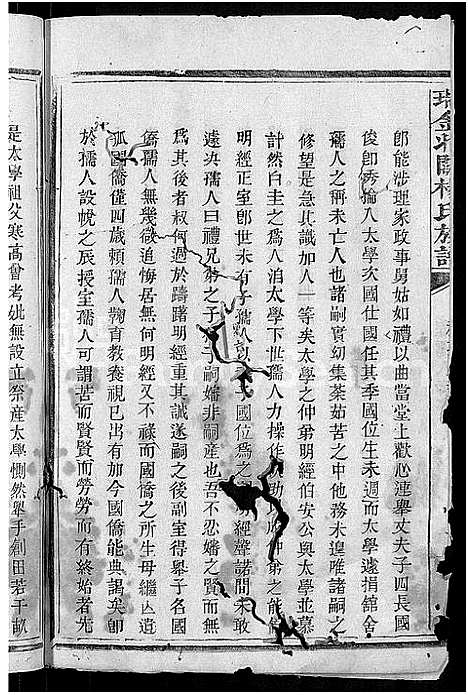 瑞金 楊氏族譜
郎能涉理家政事舅姑如禮以曲當堂上歡心連舉丈夫子四長國
俊卽秀倫入太學次國仕國任其季國位生未週而太學遽捐館舍
孺人之稱未亡人也諸嗣實幼集茶茹苦之中他務未遑唯諸嗣之
修望是急其識加人一等矣太學之仲弟明經伯安公與太學並慕
計然白圭之爲人洎太學下世孺人力操作以助仲弟之能
明經正室郎世未有子孺人以季子國位爲之嗣明經聲諾間未敢
遽決孺人曰禮兄弟之子猶子嗣嬸非嗣產也吾不忍嬸之賢而無
其後也者叔何過於躊躇明經重其誠遂嗣之後副室得舉子名國
僑孺人無幾微追悔居無何明經又不祿而國僑之所生母繼凶遺
孤國僑僅四歲賴孺人鞠育教養視已出有加今國僑能典謁矣卽
於孺人設帨之辰授室孺人可謂苦而賢賢而勞勞而有終始者尤
是太學祖父寒高曾考妣無設立祭產太學惻然舉手創田若干畝